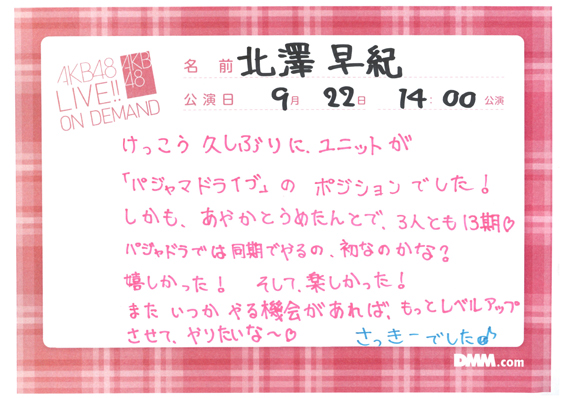 AKB48
LIVE!!
ON DEMAND
AKB
48
名前 北澤早紀
公演日 9月 22日 14:00 公演
けっこう久しぶりに、ユニットが
「パジャマドライブ」の ポジションでした!
しかも、あやかとうめたんとで、3人とも13期♡
パジャドラでは同期でやるの、初なのかな?
嬉しかった! そして、楽しかった!
また いつか やる機会があれば、もっとレベルアップ
させて、やりたいな〜♡ さっきーでした♪
DMM.com